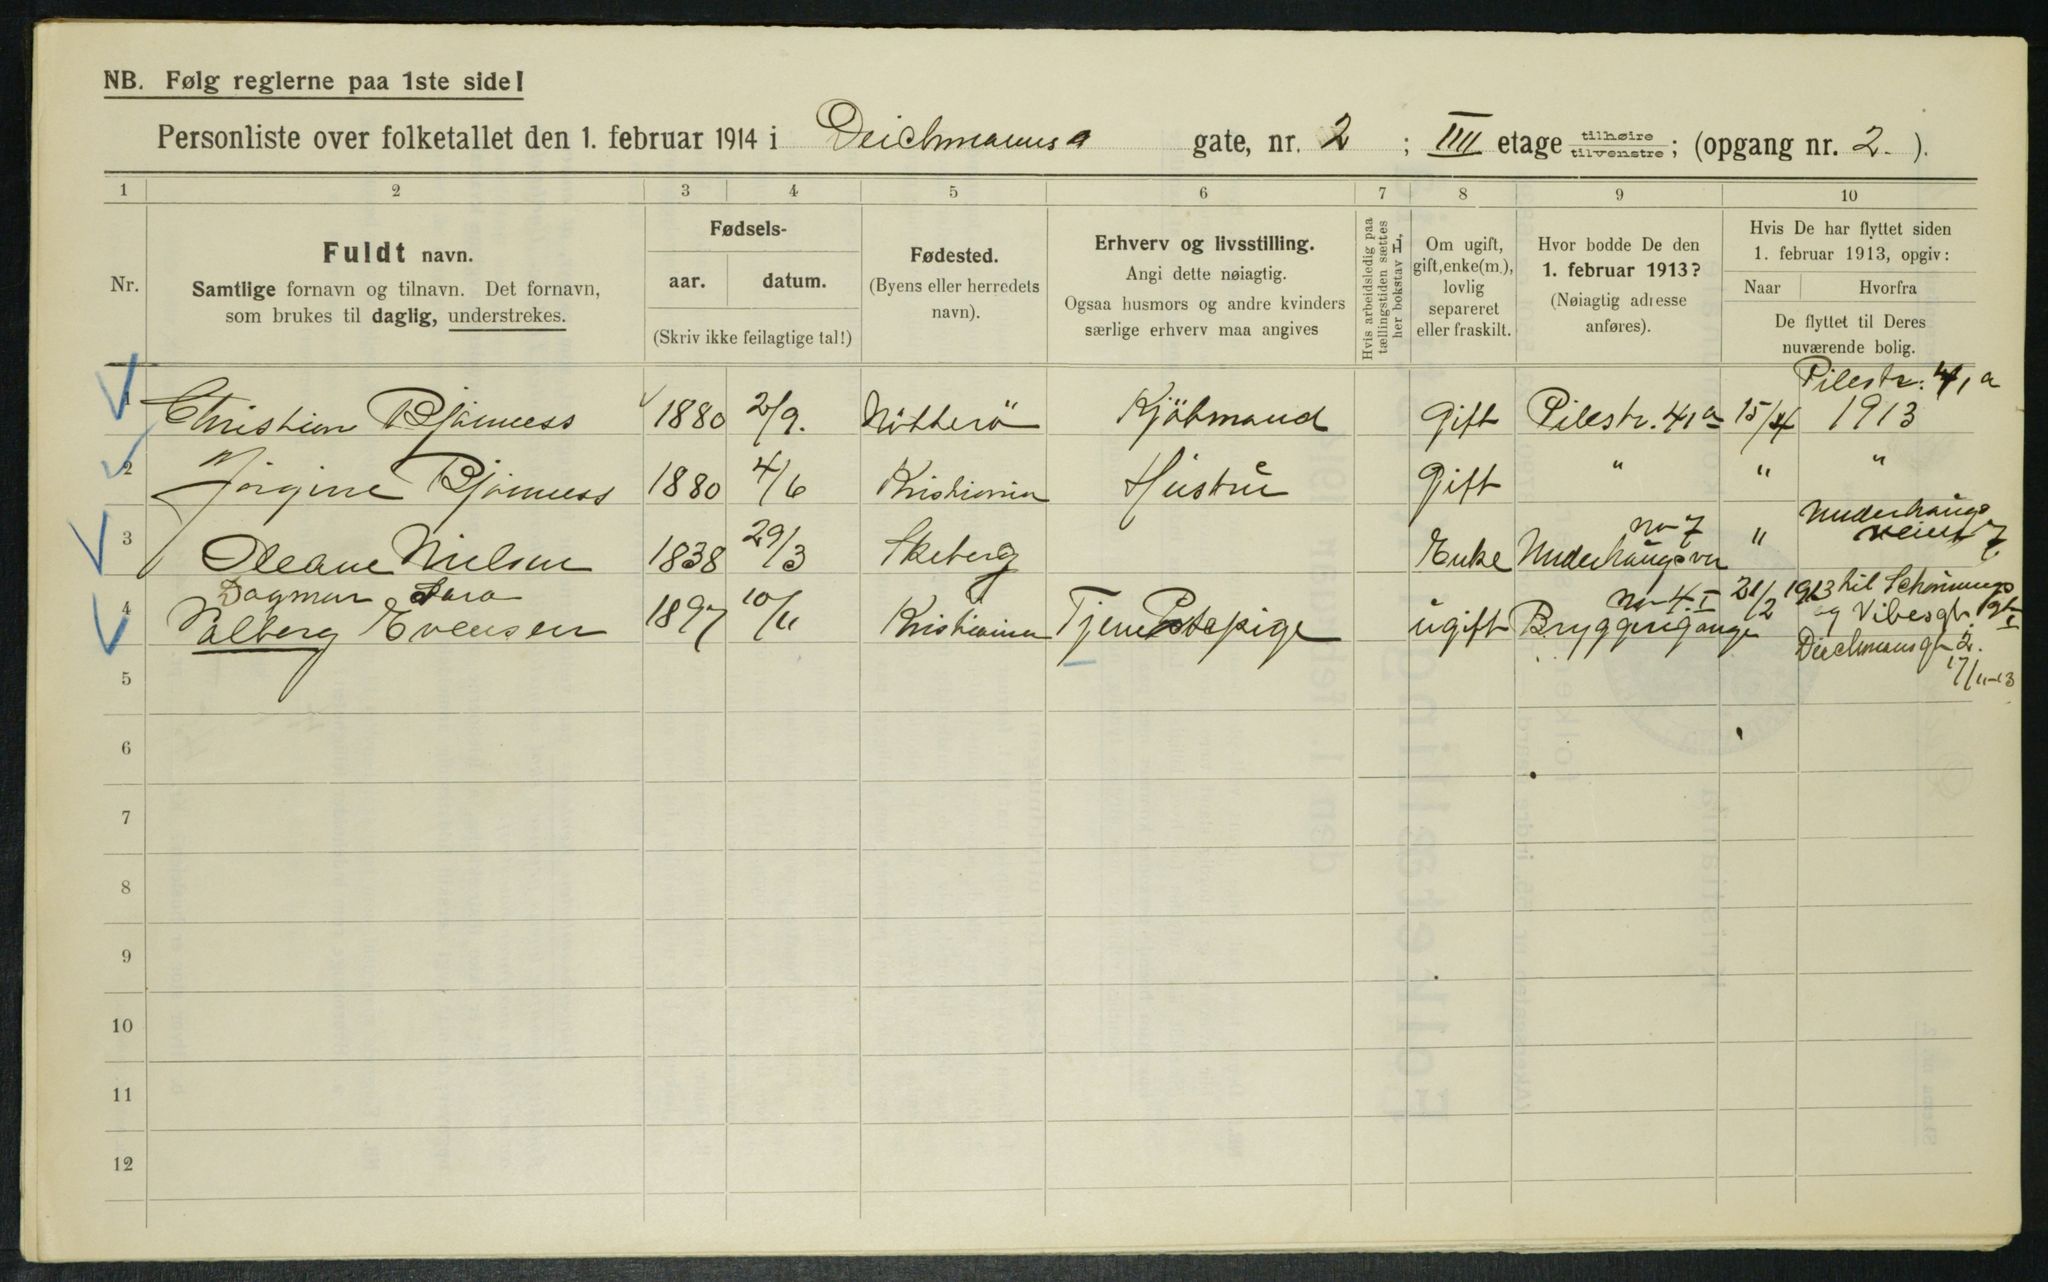 NB. Følg reglerne paa 1ste side!
Personliste over folketallet den 1. februar 1914 i Deichmanns gate, nr. 2 ; IIII etage tilhøire tilvenstre; (opgang nr. 2. ).
1 2 3 4 5 6 7 8 9 10
Nr.
Fuldt navn.
Samtlige fornavn og tilnavn. Det fornavn,
som brukes til daglig, understrekes.
Fødsels-
aar. datum.
(Skriv ikke feilagtige tal!)
Fødested.
(Byens eller herredets
navn).
Erhverv og livsstilling.
Angi dette nøiagtig.
Ogsaa husmors og andre kvinders
særlige erhverv maa angives
Hvis arbeidsledig paa
tællingstiden sættes
her bokstav L.
Om ugift,
gift, enke(m.),
lovlig
separeret
eller fraskilt.
Hvor bodde De den
1. februar 1913?
(Nøiagtig adresse
anføres).
Hvis De har flyttet siden
1. februar 1913, opgiv:
Naar Hvorfra
De flyttet til Deres
nuværende bolig.
Pilestr. 41, a
1 Christian Bjørness 1880 2/9. Nötterö Kjöbmand Gift Pilestr. 41 a 15/4 1913
2 Jörgine Bjørness 1880 4/6 Kristiania Hustru Gift " " "
3 Oleane Nielsen 1838 29/3 Skeberg Enke Underhaugsvn no 7 " Underhaugs
veien 7.
Dagmar Sara
4 Valberg Evensen 1897 10/11 Kristiania Tjenestepige ugift Bryggerigangen no 4. I 21/2 1913 til Schønnings
og Vibesgt.
Deichmansgt 2.
17/11-13
5
6
7
8
9
10
11
12